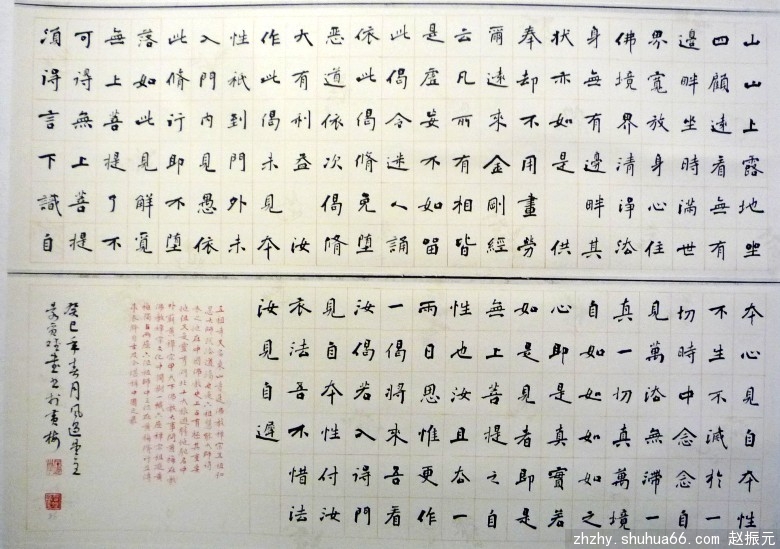 山山上露地坐
四顧遠看無有
邊畔坐時滿世
界寬放身心住
佛境界清淨法
身無有邊畔其
狀亦如是 供
奉却不用畫勞
爾遠來金剛經
云凡所有相皆
是虛妄不如留
此偈令迷人誦
依此偈脩免墮
惡道依次偈脩
大有利益 汝
作此偈未見本
性祇到門外未
入門內見愚依
此脩行即不墮
落如此見解覓
無上菩提了不
可得無上菩提
須得言下識自
本心見自本性
不生不滅於一
切時中念念自
見萬法無滯一
真一切真萬境
自如如如之
心即是真實若
如是見者即是
無上菩提之自
性也汝且去一
兩日思惟更作
一偈將來吾看
汝偈若入得門
見自本性付汝
衣法吾不惜法
汝見自遲
癸巳年春月風過堂主
zhzhy.shuhua66.com 赵振元